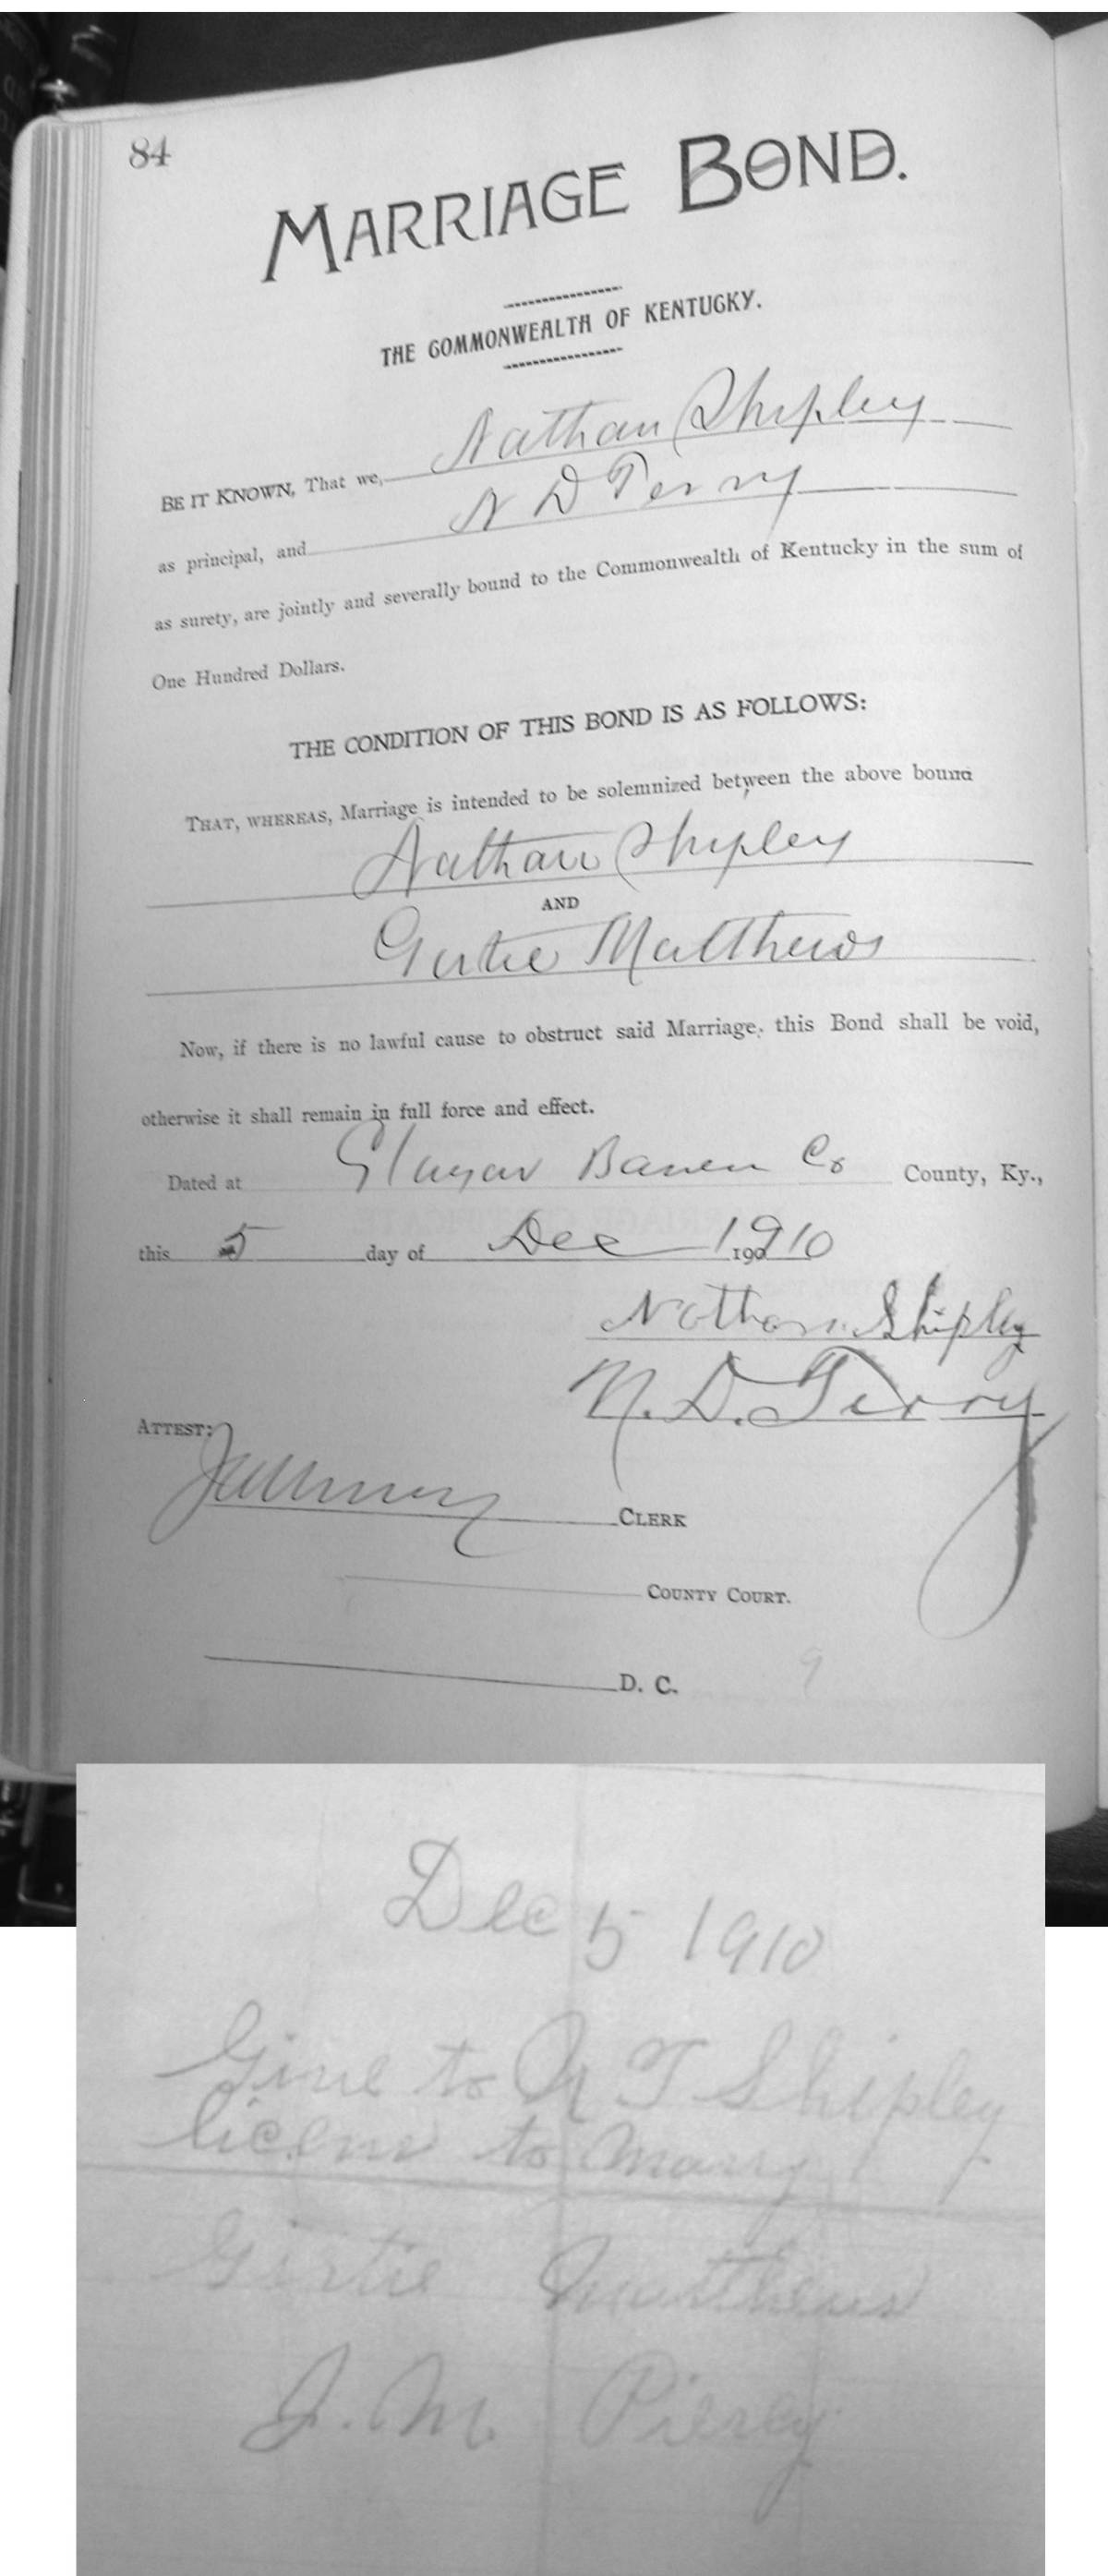 84
MARRIAGE BOND.
THE COMMONWEALTH OF KENTUCKY.
BE IT KNOWN, That we, Nathan Shipley
as principal, and N D Terry
as surety, are jointly and severally bound to the Commonwealth of Kentucky in the sum of
One Hundred Dollars.
THE CONDITION OF THIS BOND IS AS FOLLOWS:
THAT, WHEREAS, Marriage is intended to be solemnized between the above bound
Nathan Shipley
AND
Gertie Matthews
Now, if there is no lawful cause to obstruct said Marriage, this Bond shall be void,
otherwise it shall remain in full force and effect.
Dated at Barren Co County, Ky.,
this 5 day of Dec 190 1910
Nathan Shipley
N. D. Terry
ATTEST:
CLERK
COUNTY COURT.
D. C.
9
Dec 5 1910
Give to N T Shipley
to marry
Girtie Matthews
J. M. Piercy